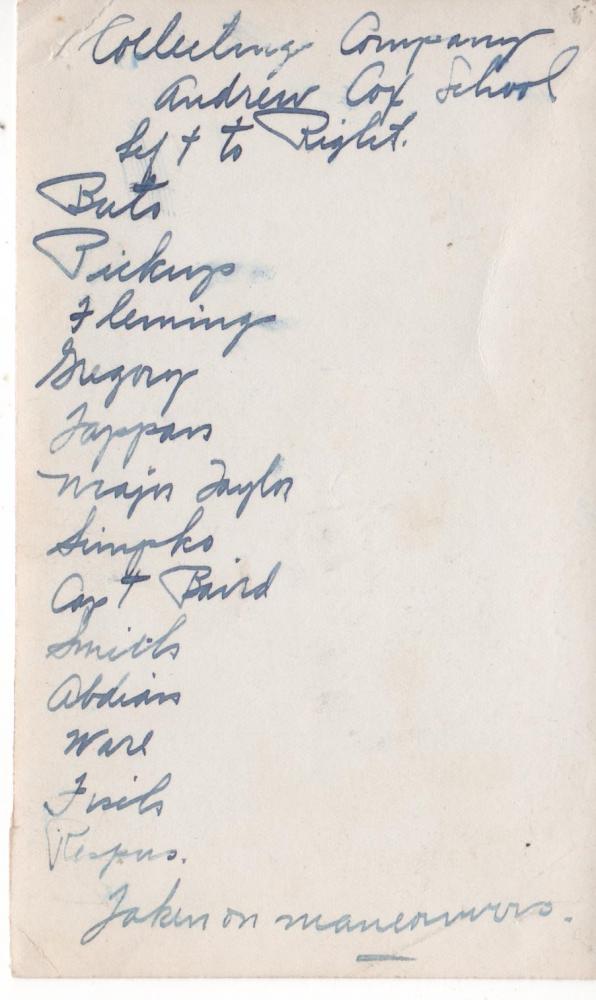 Collecting Company
Andrew Cox School
Left to Right.
Buto
Pickup
Fleming
Gregory
Tappan
Major Taylor
Simpko
Capt Baird
Smith
Abdian
Ware

Taken on maneouvers.